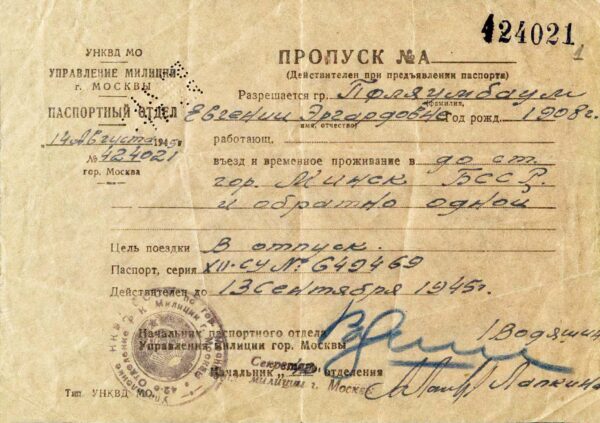 124021
1
УНКВД МО
УПРАВЛЕНИЕ МИЛИЦИИ
г. МОСКВЫ
ПАСПОРТНЫЙ ОТДЕЛ
14 Августа 1945
№ 424021
гор. Москва
ПРОПУСК №А
(Действителен при предъявлении паспорта)
Разрешается гр. Поляумбаум
фамилия,
Евгении Эргардовне Год рожд. 1908 г.
имя, отчество
работающ.
въезд и временное проживание в до ст.
гор. Минск БССР.
и обратно одной
Цель поездки в отпуск.
Паспорт, серия XII-СУ № 649469
Действителен до 13 Сентября 1945 г.
Начальник паспортного отдела
Управления Милиции гор. Москвы
Водяшин
Секретарь
Начальник отделения
милиции г. Москвы
Лапкина
Тип. УНКВД МО.